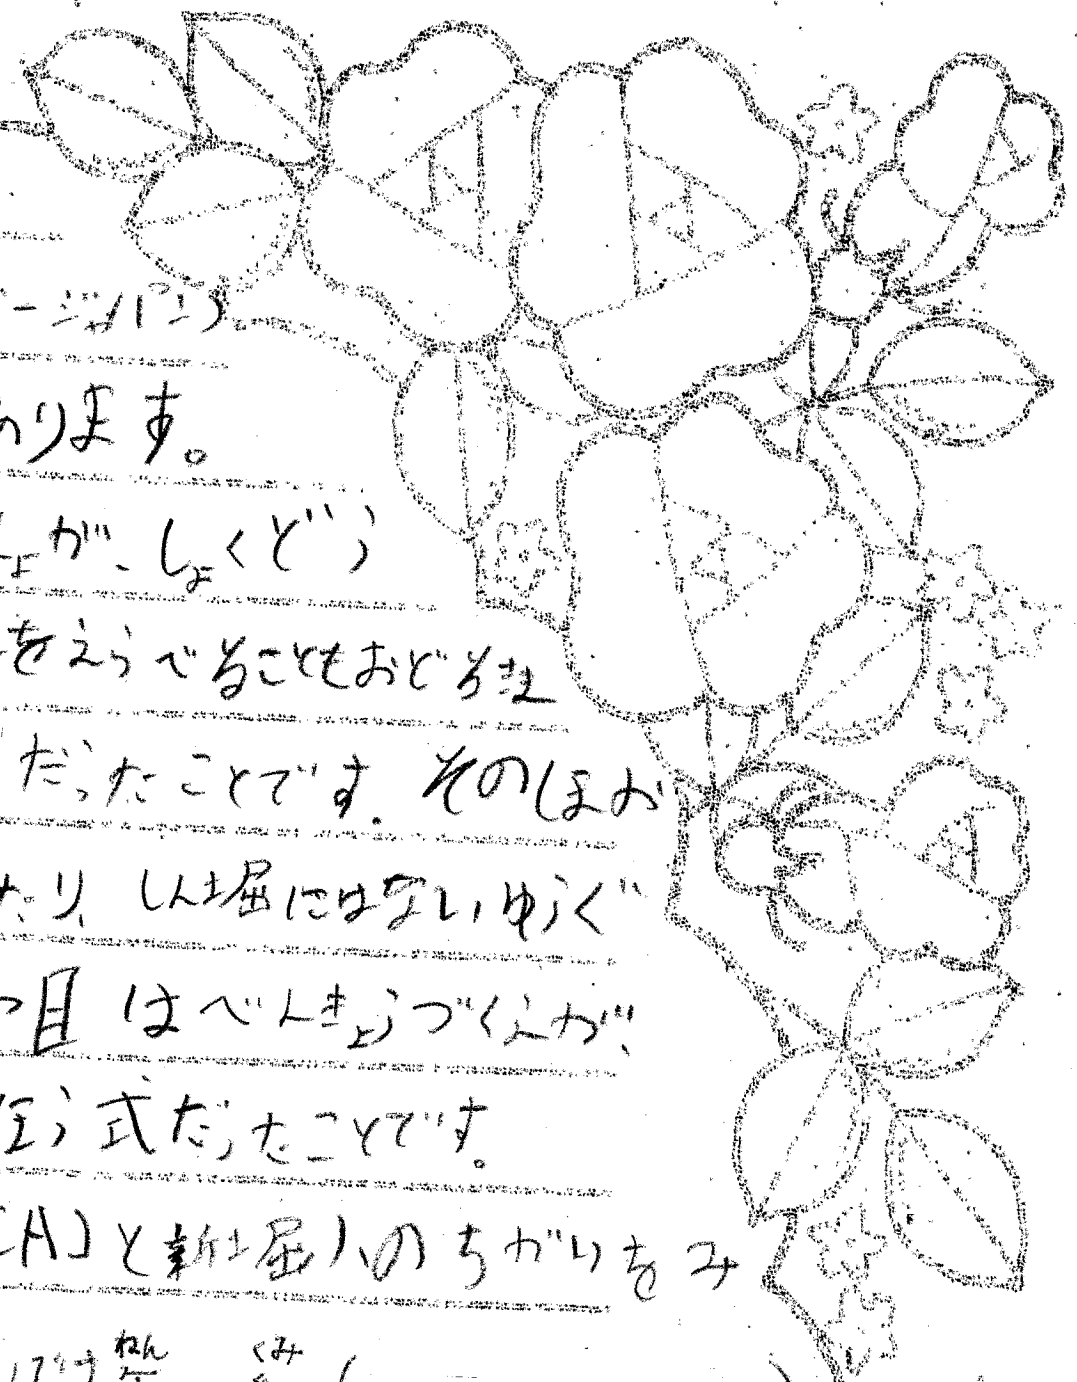 ージャパン
ります。
ょが、しょくどう
をえらべることもおどろきま
だったことです。そのほか
たり、しん堀にはないゆうぐ
つ目はべんきょうづくえが、
式だったことです。
と新堀小のちがいをみ
ねん くみ